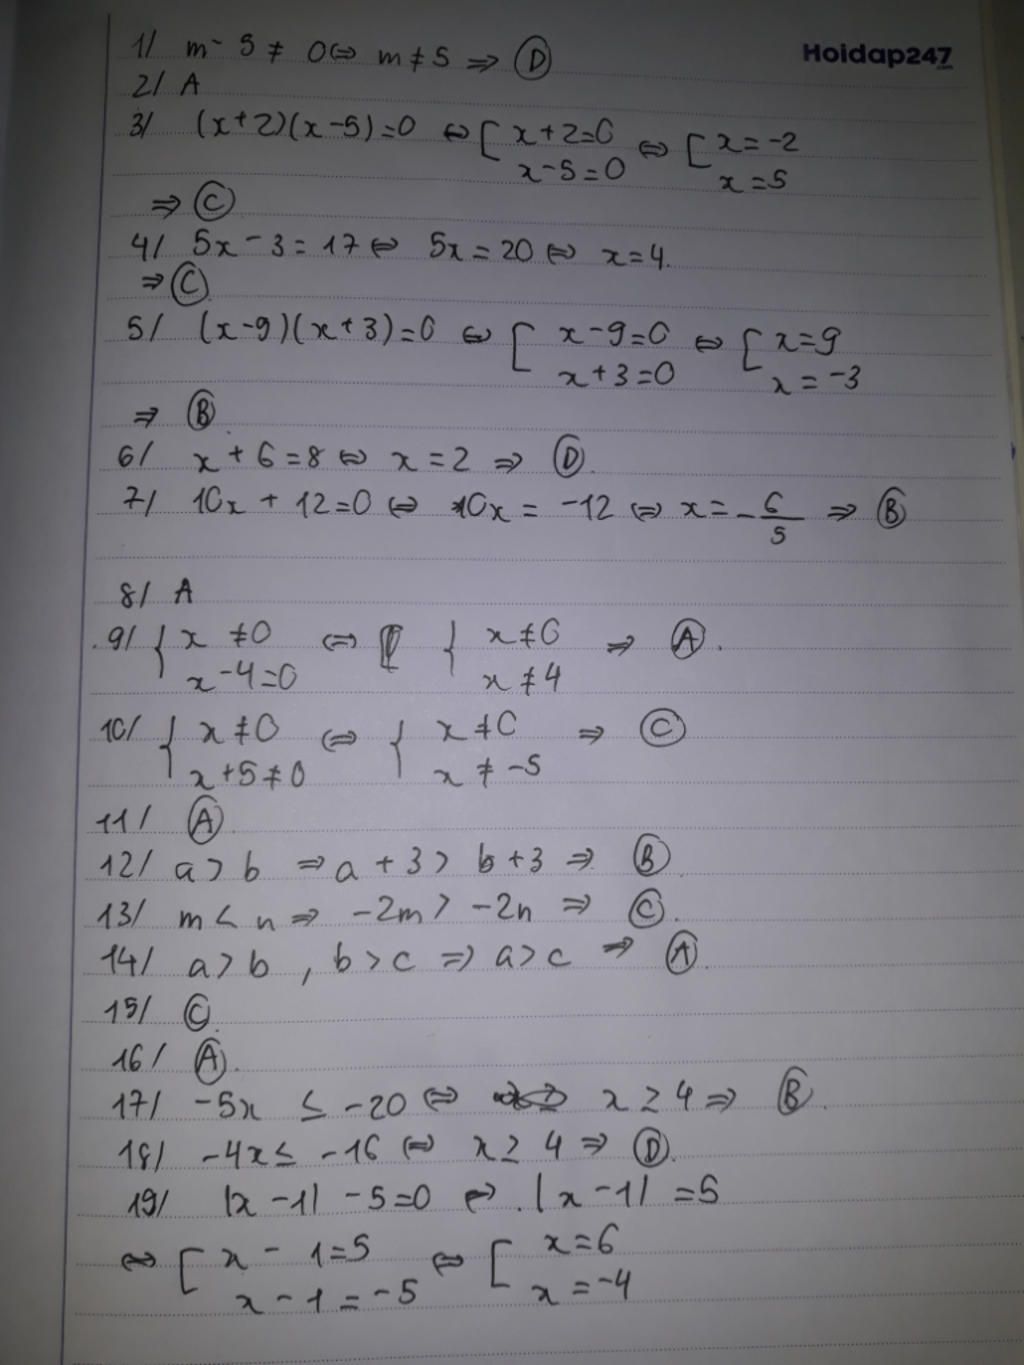 Hoidap247.com
1/ m - 5 ≠ 0 ⇔ m ≠ 5 ⇒ D
2/ A
3/ (x+2)(x-5)=0 ⇔ [ x+2=0 ⇔ [ x=-2
x-5=0 x=5
⇒ C
4/ 5x - 3 = 17 ⇔ 5x = 20 ⇔ x=4.
⇒ C
5/ (x-9)(x+3)=0 ⇔ [ x-9=0 ⇔ [ x=9
x+3=0 x=-3
⇒ B
6/ x+6=8 ⇔ x=2 ⇒ D.
7/ 10x + 12=0 ⇔ 10x = -12 ⇔ x = -6/5 ⇒ B
8/ A
9/ { x ≠0 ⇔ { x≠0 ⇒ A.
x-4=0 x≠4
10/ { x ≠0 ⇔ { x≠0 ⇒ C
x+5≠0 x ≠ -5
11/ A.
12/ a > b ⇒ a + 3 > b+3 ⇒ B
13/ m < n ⇒ -2m > -2n ⇒ C.
14/ a>b , b>c ⇒ a>c ⇒ A.
15/ C.
16/ A.
17/ -5x ≤ -20 ⇔ x ≥ 4 ⇒ B.
18/ -4x ≤ -16 ⇔ x ≥ 4 ⇒ D.
19/ |x-1| -5=0 ⇔ |x-1| =5
⇔ [ x - 1=5 ⇔ [ x=6
x-1=-5 x=-4